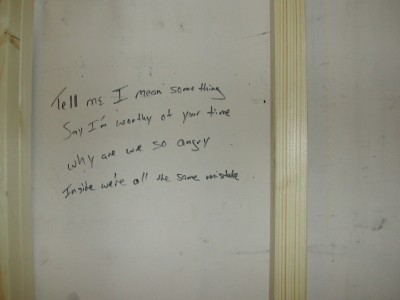 Tell me I mean something
Say I'm worthy of your time
why are we so angry
Inside we're all the same mistake.